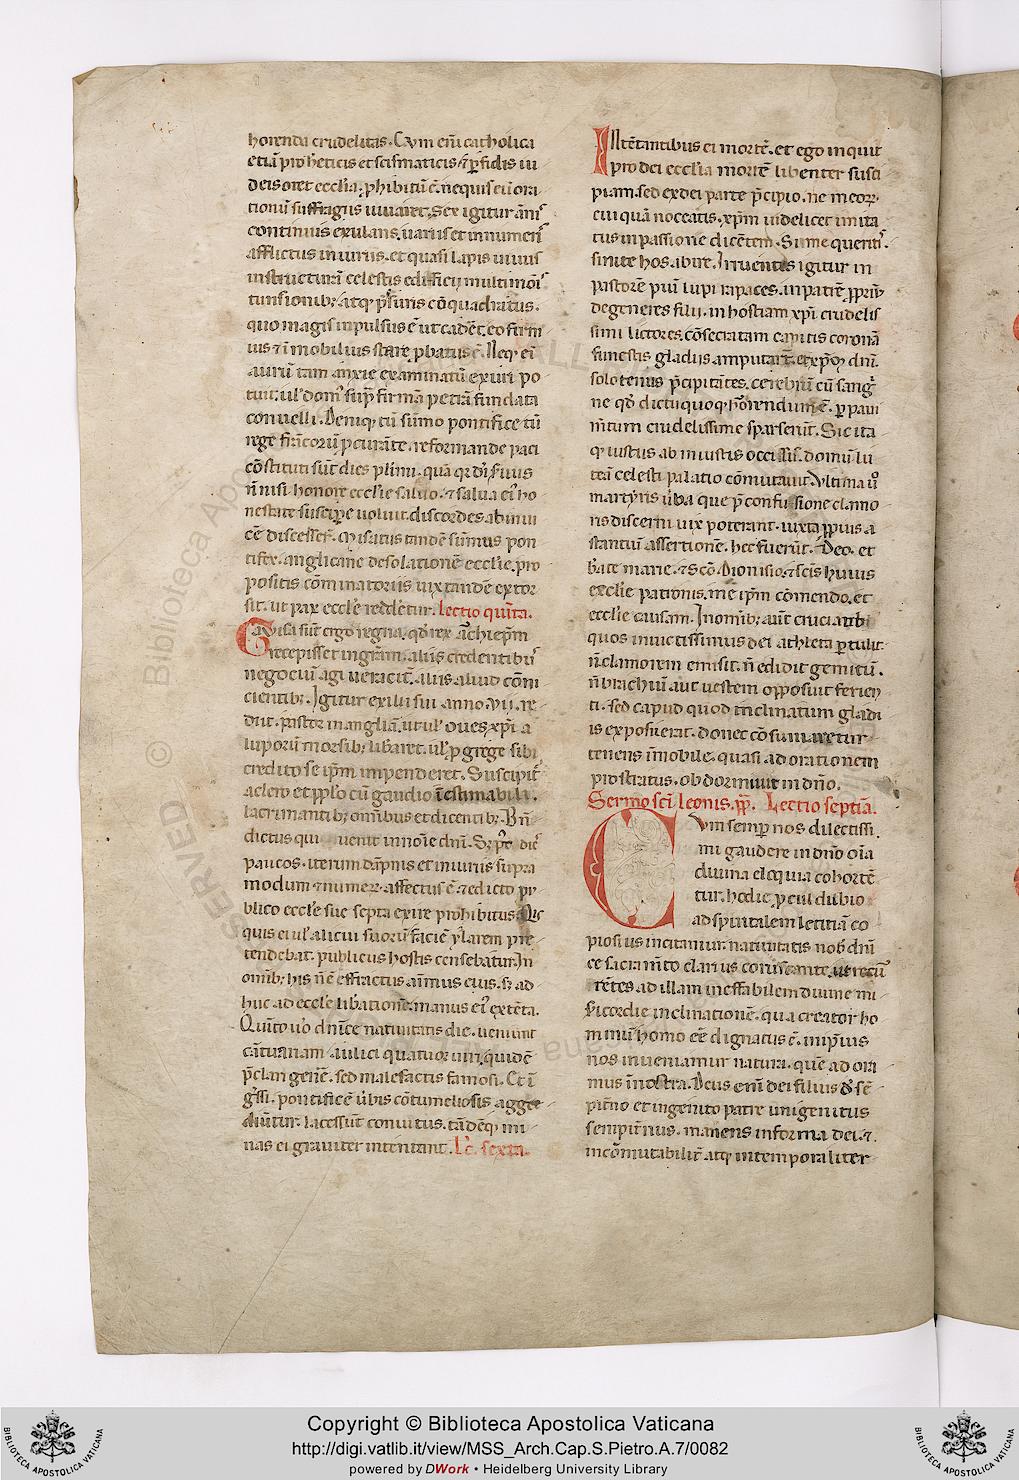 horenda crudelitas. Cum eni catholica
etiā pro hereticis et scismaticis ⁊ pfidis iu
deis oret ecclia. phibitū ē. ne quis eū ora
tionū suffragiis iuuaret. Sex igitur ānis
continuis exulans. uariis et innumeris
afflictus iniuriis. et quasi lapis uiuus
instructurā celestis edificij multimoīs
tunsionib; atq; psuris cōquadratus.
quo magis inpulsus ē ut cadet. eo firmi
ius ⁊ īmobilius stare pbatus ē. Neq; eī
aurū tam anxie examinatū exuri po
tuit. ul' dom' sup firmā petrā fundata
conuelli. Deniq; tū sūmo pontifice tū
rege frācorū pcurāte. reformande paci
cōstituti sūt dies plīmi. quā qr dī seruus
n̄ nisi honore ecclīe saluo. ⁊ salua eī ho
nestate suscipe uoluit. discordes abinui
cē discesserūt. Misatus tandē sūmus pon
tifex. anglicane desolationē ecclīe. pro
positis cōminatoriis uix tandē extor
sit. ut pax ecclīe redderetur. Lectio quīta.
Gauisa sūt ergo regna. qd' rex archiepm
recepisset in grām. aliis credentibus
negociū agi ueracit̄. aliis aliud cōni
cientib;. Igitur exilii sui anno. vii. re
diit. pastor in angliā. ut ul' oues xpi a
luporū morsib; libaret. ul' p grege sibi
credito se ipm impenderet. Suscipit
a clero et pplo cū gaudio īestimabili.
lacrimantib; omnibus et dicentib; Bn̄
dictus qui uenit in noīe dnī. S; pt' dies
paucos. iterum dāpnis et iniuriis supra
modum ⁊ numerū affectus ē ⁊ edicto pu
blico ecclīe sue septa exire prohibitus. Quis
quis ei ul' alicui suorū faciē ylarem pre
tendebat. publicus hostis censebatur. In
omib; his n̄ ē effractus animus eius. s; ad
huc ad ecclīe libationē. manus eī extēta.
Quīto uo dnice natiuitatis die. ueniunt
cātuariam aulici quatuor uiri quidē
pclari genē. sed malefactis famosi. Et ī
gssi. pontificē ubis cōtumeliosis aggre
diūtur. lacessunt conuitiis. tādēq; mi
nas ei grauiter intentant. Lc̄. sexta.
Intētantibus ei mortē. et ego inquit
pro dei ecclia mortē libenter susci
piam. sed ex dei parte pcipio. ne meorū
cuiquā noceatis. xpm uidelicet imita
tus in passione dicētem. Si me queritis.
sinite hos abire. Irruentes igitur in
pastorē piū lupi rapaces. in patrē pprium
degeneres filii. in hostiam xpi crudelis
simi lictores. cōsecratam capitis coronā
funestis gladiis amputarūt. et xpm dnī.
solo tenus pcipitātes. cerebrū cū sangui
ne qd' dictu quoq; horrendum ē. p paui
mtum crudelissime sparserūt. Sic ita
q; iustus ab iniustis occisus. domū lu
teā celesti palatio cōmutauit. Vltima uo
martyris uba que p confusione clamo
ris discerni uix poterant. iuxta pprius a
stantiū assertionē. hec fuerūt. Deo. et
bate marie. ⁊ sco. dionisio. ⁊ scīs huius
ecclīe patronis. me ipm cōmendo. et
ecclīe causam. In omib; aūt cruciatibus
quos inuictissimus dei athleta ptulit.
n̄ clamorem emisit. n̄ edidit gemitū.
n̄ brachiū aut uestem opposuit ferien
ti. sed capud quod inclinatum gladi
is exposuerat. donec cōsumaretur
tenens īmobile. quasi ad orationem
prostratus. obdormiuit in dno.
Sermo scī leonis. pp. Lectio septīa.
Cum semp nos dilectissi
mi gaudere in dno oīa
diuina eloquia cohortē
tur. hodie pcul dubio
ad spiritalem letitiā co
piosius incitamur. natiuitatis nob dnī
ce sacramto clarius coruscante. ut recur
rētes ad illam ineffabilem diuine mi
sericordie inclinationē. qua creator ho
minū homo ēe dignatus ē. in ipius
nos inueniamur natura. quē adora
mus ī nostra. Deus enī dei filius de sē
pitno et ingenito patre unigenitus
sempitnus. manens in forma dei. ⁊
incōmutabilit̄ atq; intemporaliter
Copyright © Biblioteca Apostolica Vaticana
http://digi.vatlib.it/view/MSS_Arch.Cap.S.Pietro.A.7/0082
powered by DWork • Heidelberg University Library
BIBLIOTECA APOSTOLICA VATICANA
BIBLIOTECA APOSTOLICA VATICANA